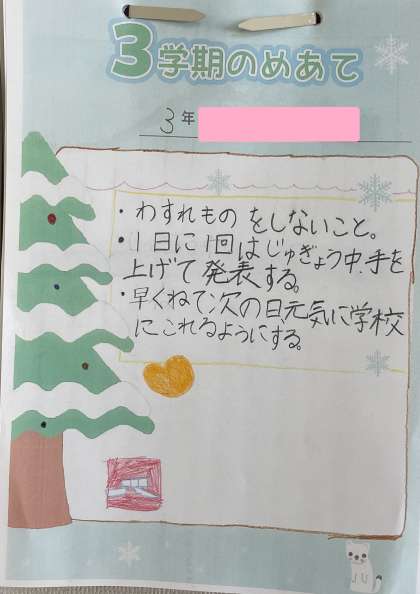 3学期のめあて
3年
・わすれものをしないこと。
・1日に1回はじゅぎょう中、手を
上げて発表する。
・早くねて、次の日、元気に学校
にこれるようにする。